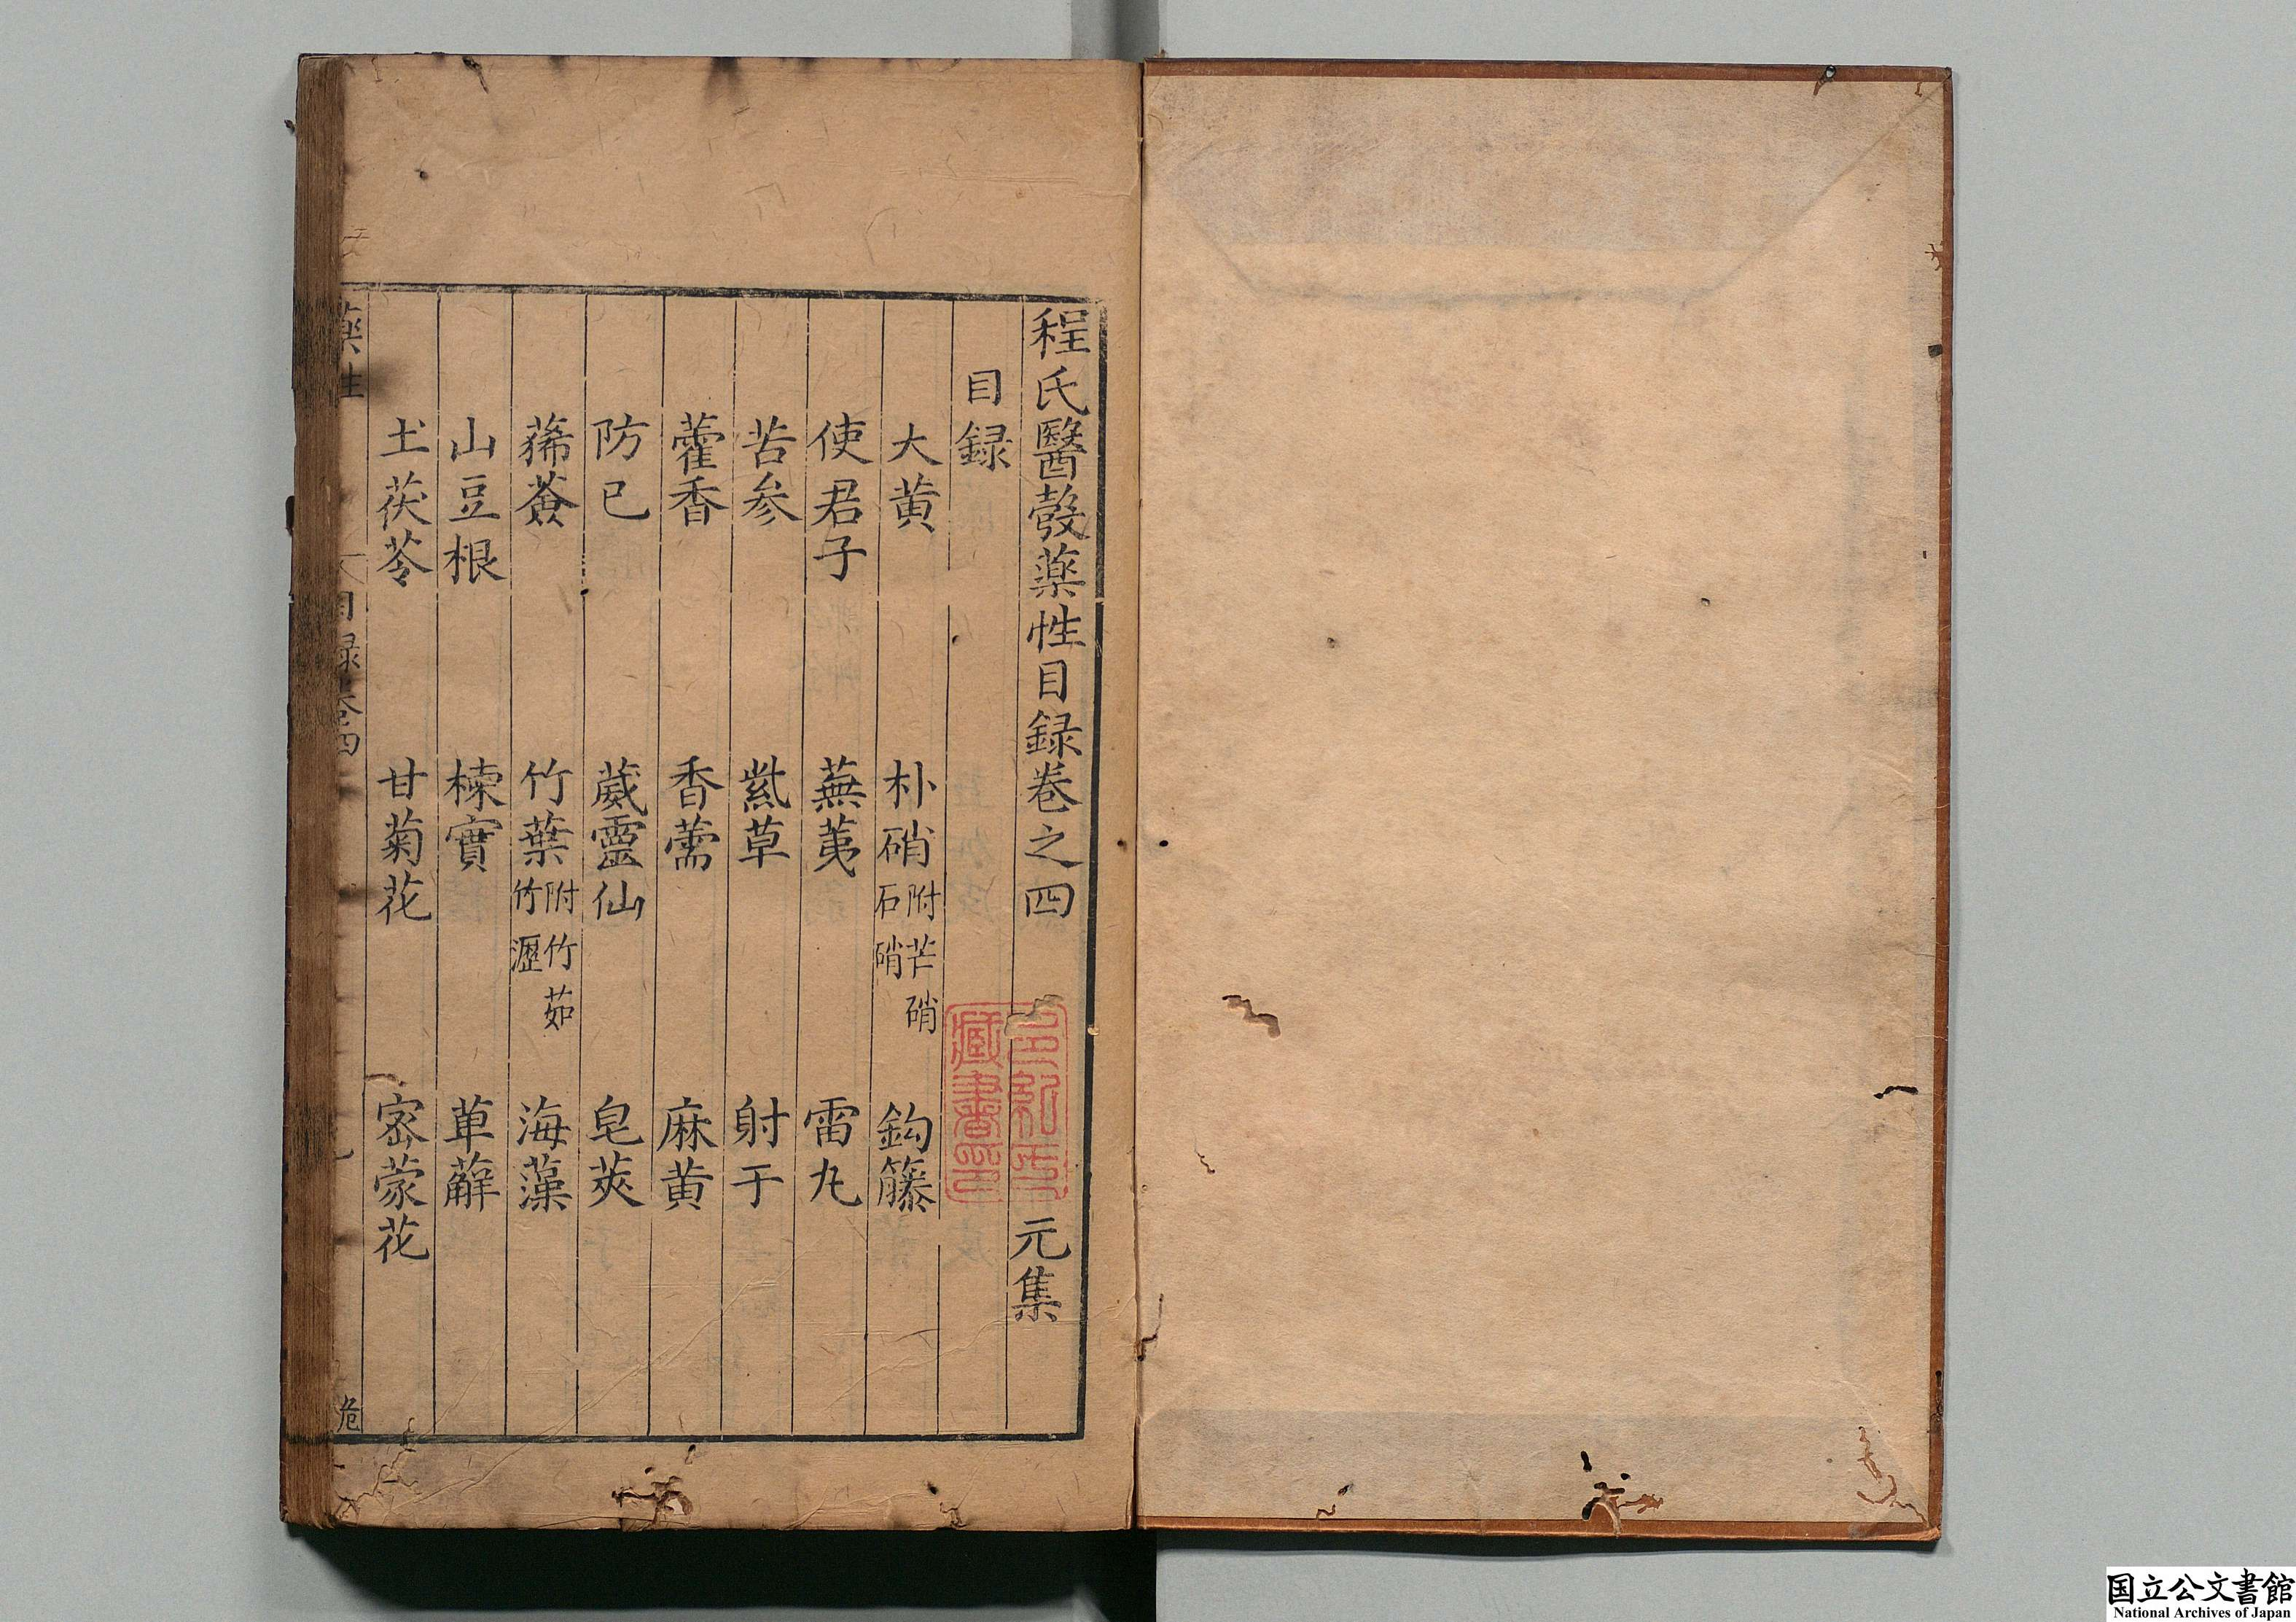 程氏醫彀藥性目録卷之四 元集
目録
大黄 朴硝 附芒硝 石硝 鈎籐
使君子 蕪荑 雷丸
苦參 紫草 射干
藿香 香薷 麻黄
防已 葳靈仙 皂莢
蒒薟 竹葉 附竹茹 竹瀝 海藻
山豆根 楝實 萆薢
土茯苓 甘菊花 密蒙花
藥性 目録卷四
危
藏書印
国立公文書館
National Archives of Japan